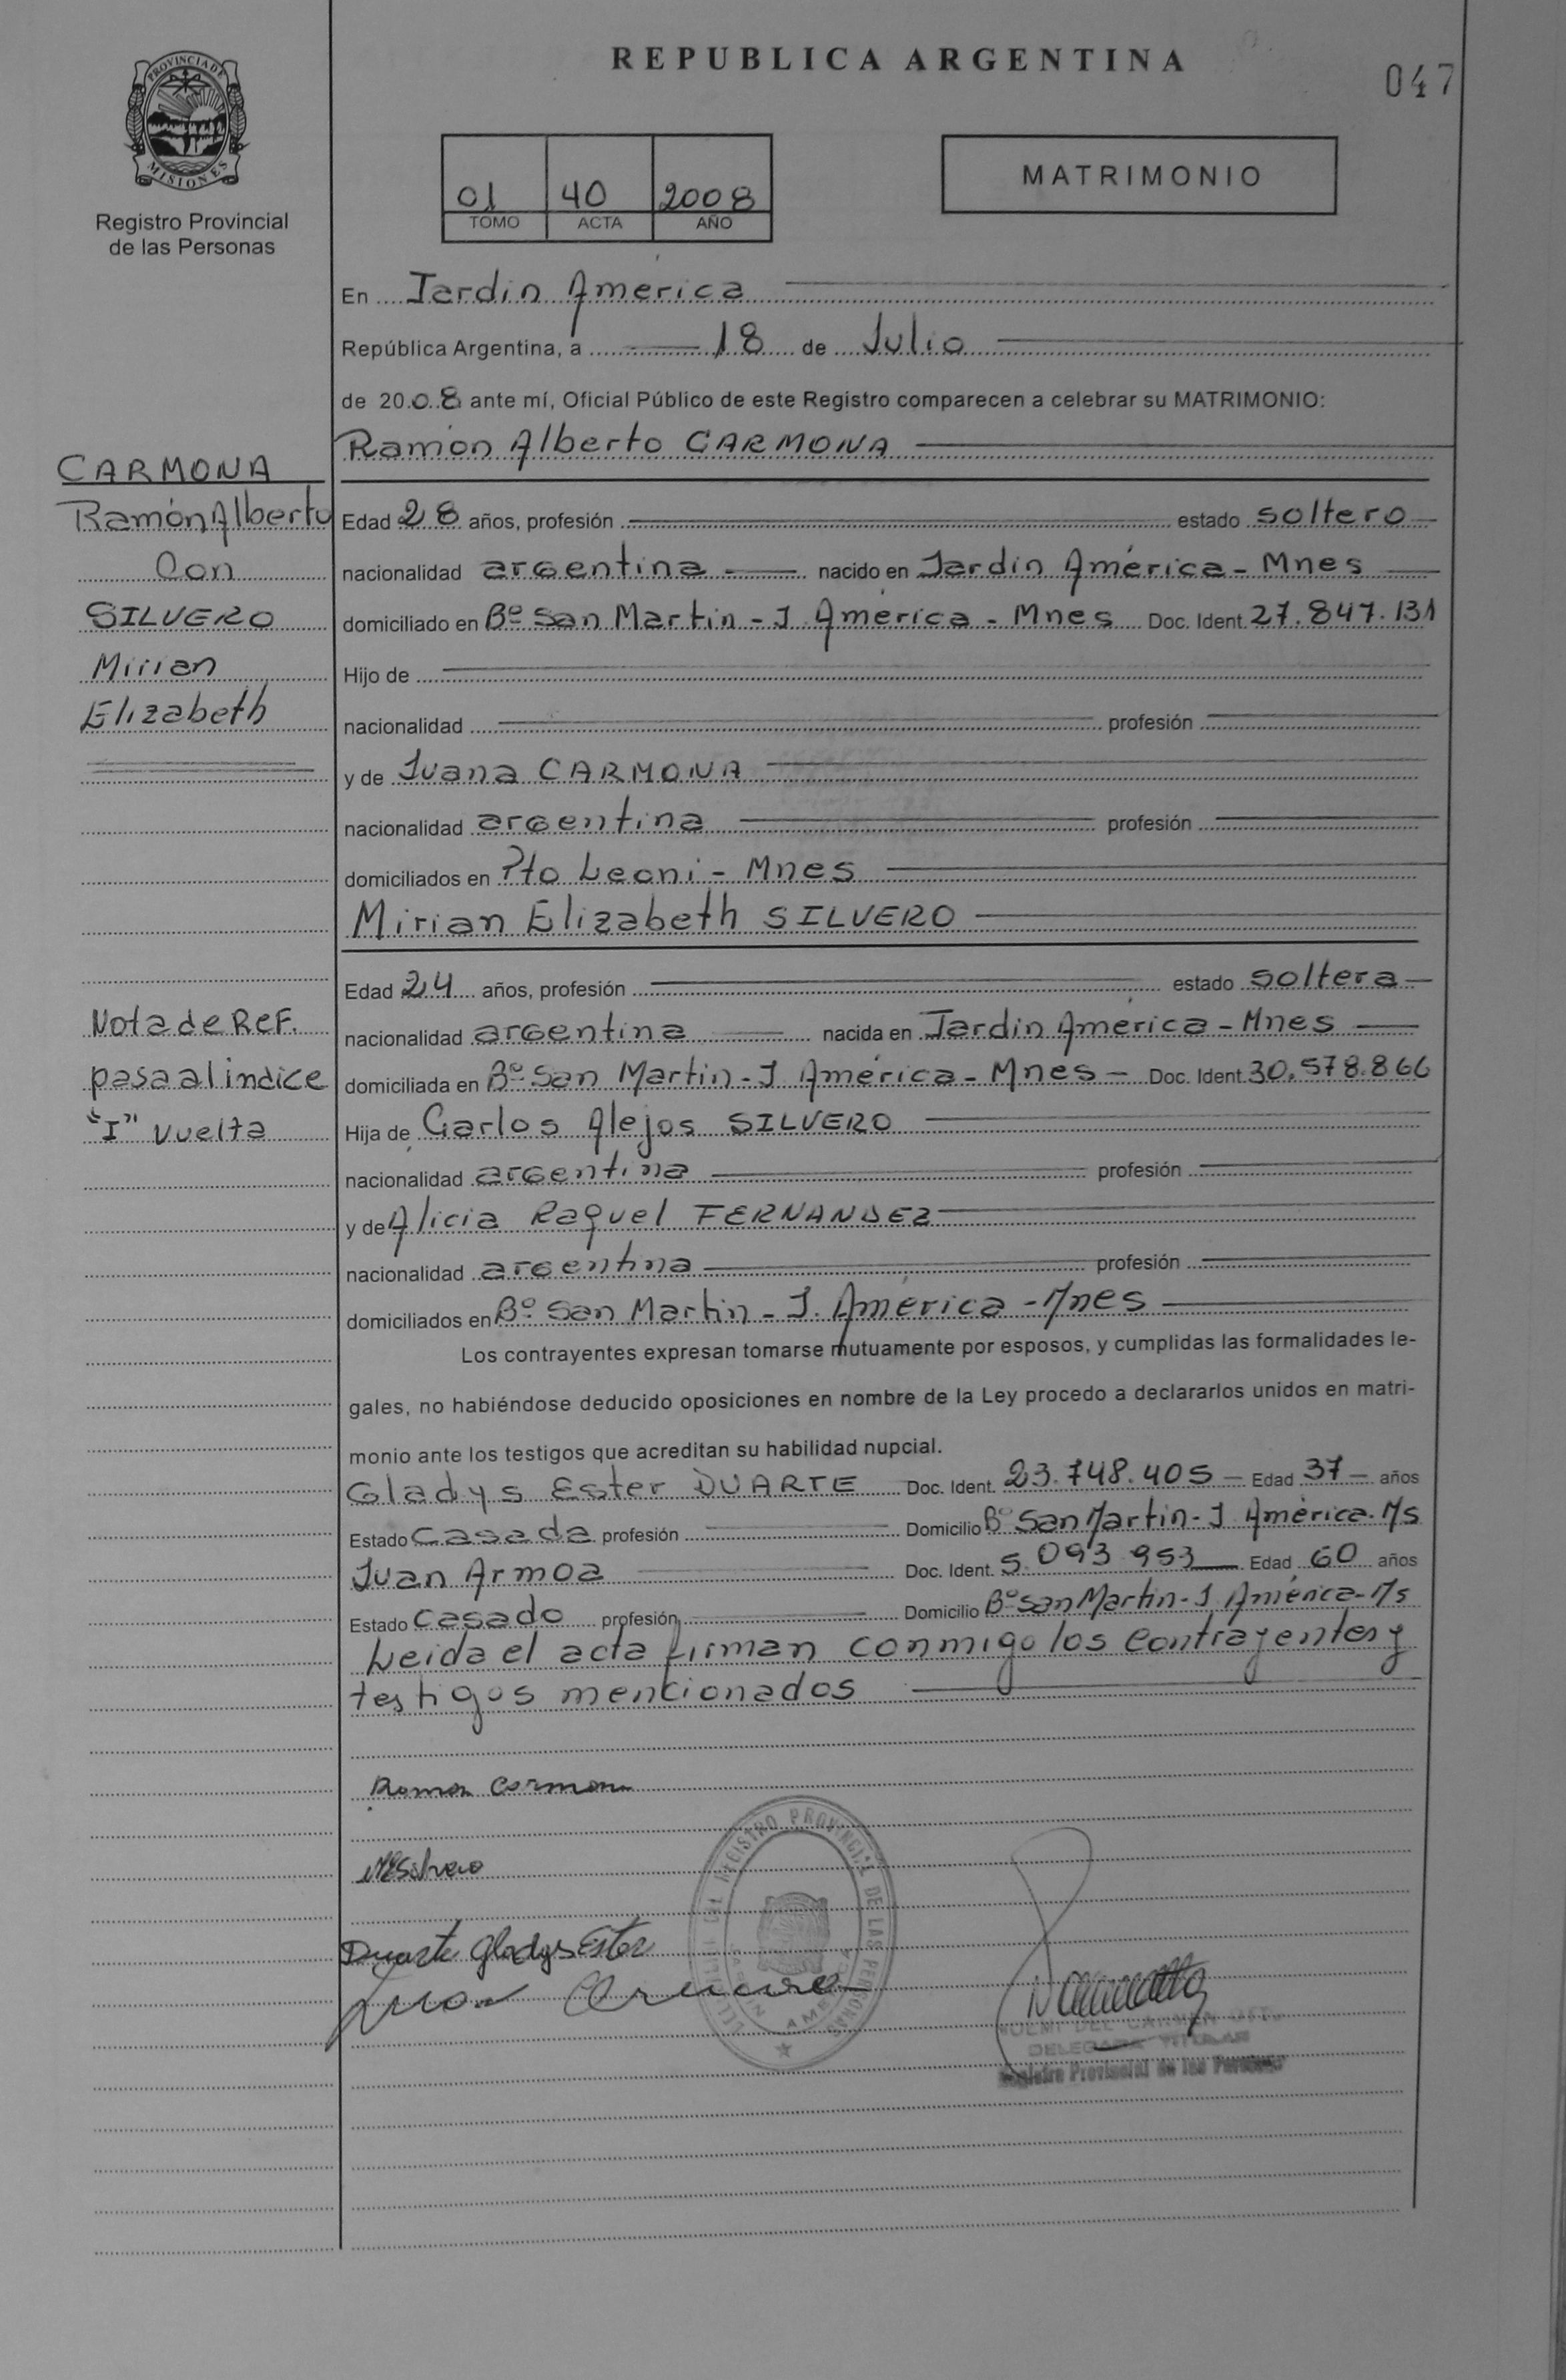 REPUBLICA ARGENTINA
047
PROVINCIA DE
MISIONES
Registro Provincial
de las Personas
01 40 2008
TOMO ACTA AÑO
MATRIMONIO
En Jardín América
República Argentina, a 18 de Julio
de 2008 ante mí, Oficial Público de este Registro comparecen a celebrar su MATRIMONIO:
Ramón Alberto CARMONA
Edad 28 años, profesión estado soltero
nacionalidad argentina nacido en Jardín América - Mnes
domiciliado en Bº San Martin - J América - Mnes Doc. Ident. 27.847.131
Hijo de
nacionalidad profesión
y de Juana CARMONA
nacionalidad argentina profesión
domiciliados en Pto Leoni - Mnes
Mirian Elizabeth SILVERO
Edad 24 años, profesión estado soltera
nacionalidad argentina nacida en Jardín América - Mnes
domiciliada en Bº San Martin - J América - Mnes - Doc. Ident. 30.578.866
Hija de Carlos Alejos SILVERO
nacionalidad argentina profesión
y de Alicia Raquel FERNANDEZ
nacionalidad argentina profesión
domiciliados en Bº San Martin - J. América - Mnes
Los contrayentes expresan tomarse mutuamente por esposos, y cumplidas las formalidades le-
gales, no habiéndose deducido oposiciones en nombre de la Ley procedo a declararlos unidos en matri-
monio ante los testigos que acreditan su habilidad nupcial.
Gladys Ester DUARTE Doc. Ident. 23.748.405 - Edad 37 - años
Estado Casada profesión Domicilio Bº San Martin - J América - Ms
Juan Armoa Doc. Ident. 5.093.953 Edad 60 años
Estado Casado profesión Domicilio Bº San Martin - J América - Ms
Leida el acta firman conmigo los contrayentes y
testigos mencionados
CARMONA
Ramón Alberto
Con
SILVERO
Mirian
Elizabeth
Nota de Ref.
pasa al indice
"I" vuelta
Ramon Carmona
MESilvero
Duarte Gladys Ester
Juan Armoa
REGISTRO PROVINCIAL DE LAS PERSONAS
JARDIN AMERICA
DEL CARMEN
DELEGADA TITULAR
Registro Provincial de las Personas